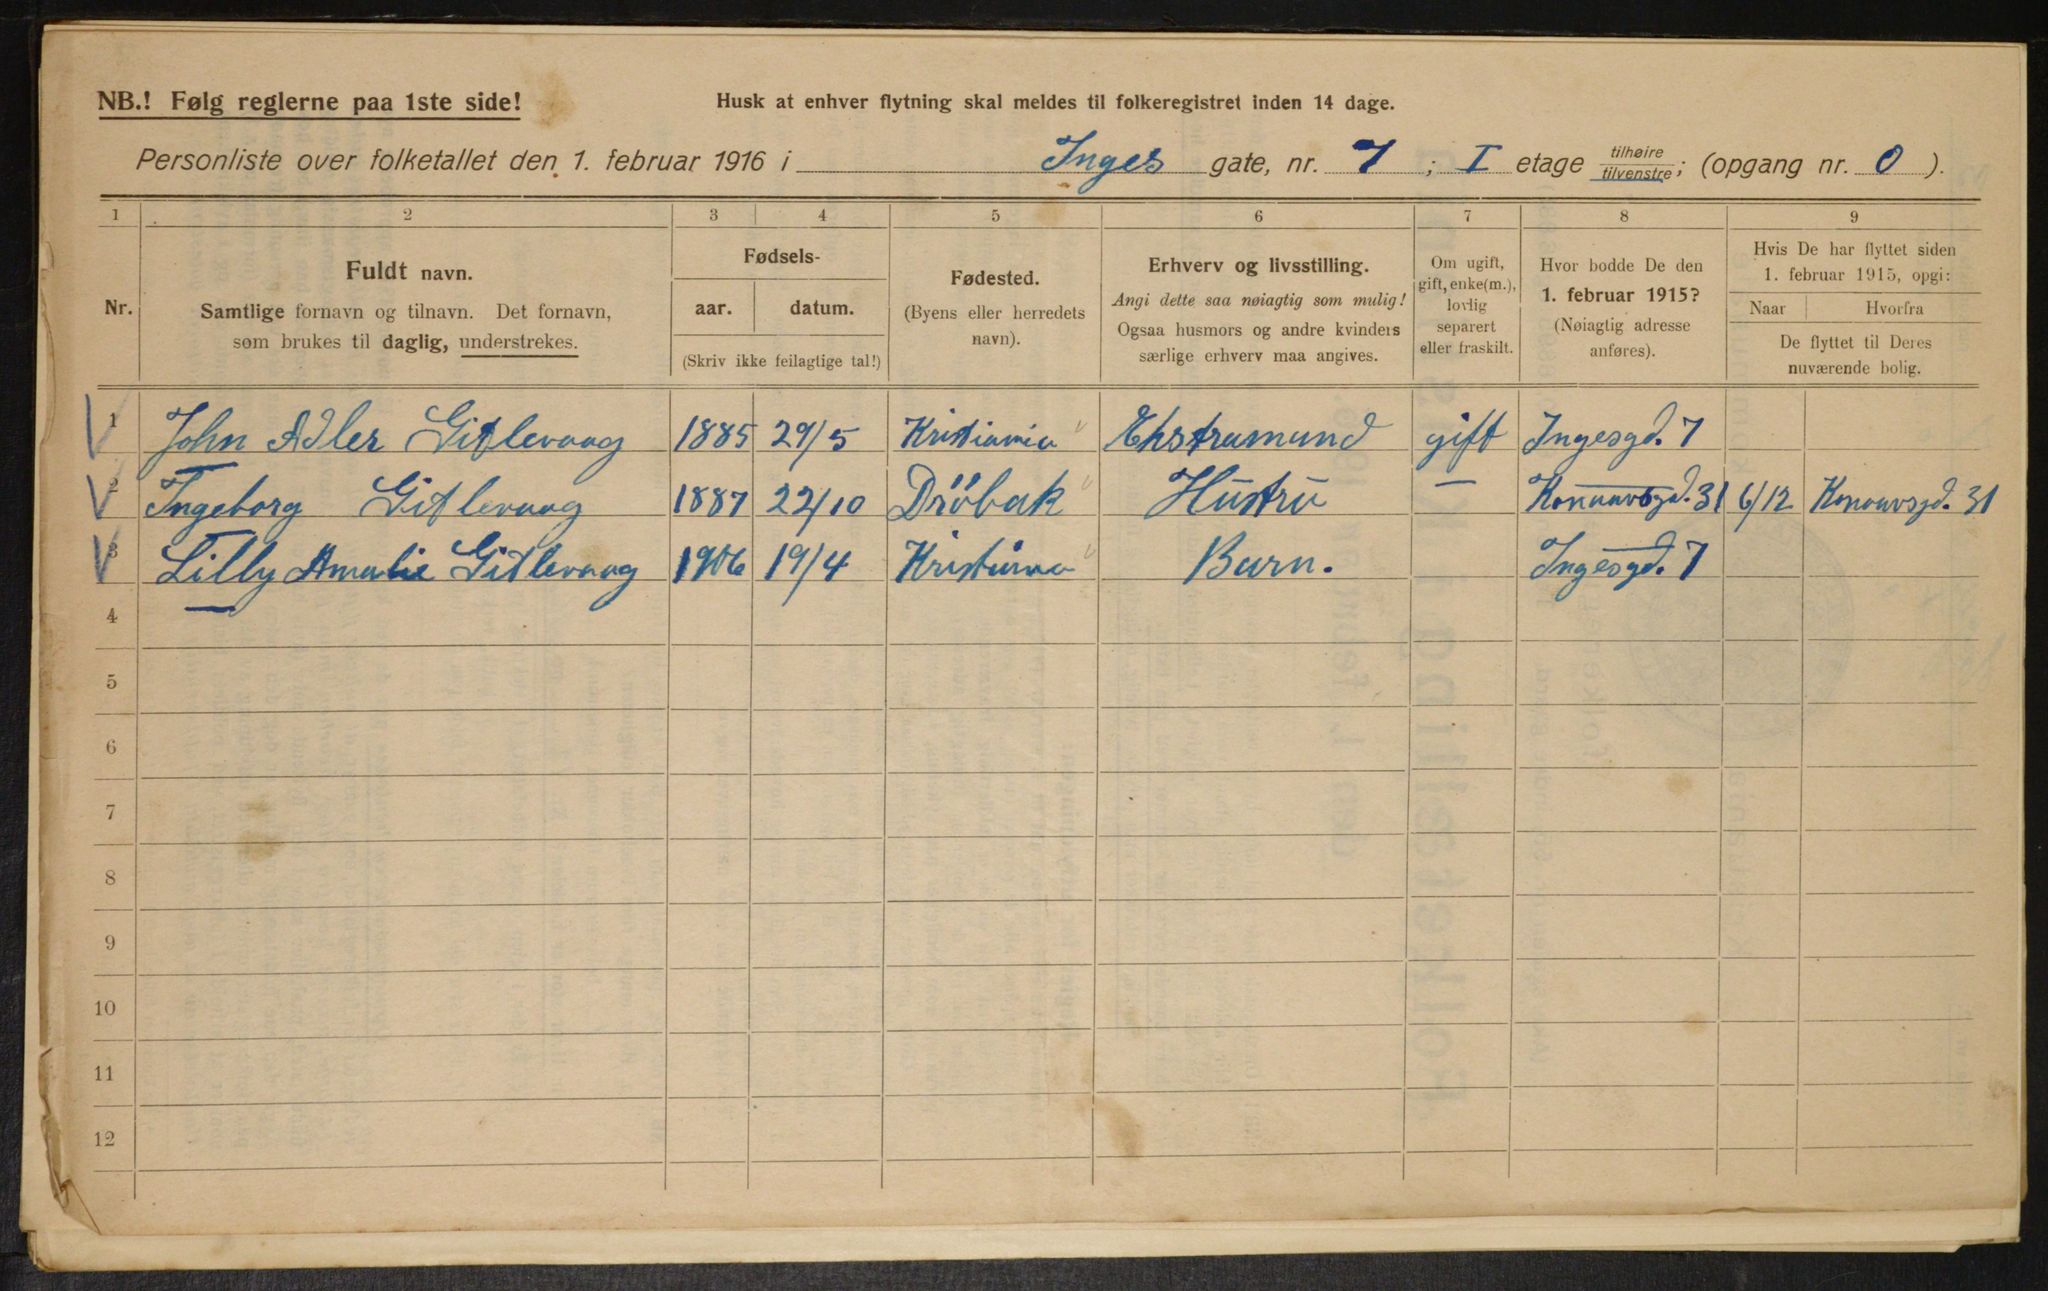 NB.! Følg reglerne paa 1ste side!
Husk at enhver flytning skal meldes til folkeregistret inden 14 dage.
Personliste over folketallet den 1. februar 1916 i Inges gate, nr. 7; I etage tilhøire tilvenstre; (opgang nr. 0).
1 2 3 4 5 6 7 8 9
Nr.
Fuldt navn.
Samtlige fornavn og tilnavn. Det fornavn,
som brukes til daglig, understrekes.
Fødsels-
aar. datum.
(Skriv ikke feilagtige tal!)
Fødested.
(Byens eller herredets
navn).
Erhverv og livsstilling.
Angi dette saa nøiagtig som mulig!
Ogsaa husmors og andre kvinders
særlige erhverv maa angives.
Om ugift,
gift, enke(m.),
lovlig
separert
eller fraskilt.
Hvor bodde De den
1. februar 1915?
(Nøiagtig adresse
anføres).
Hvis De har flyttet siden
1. februar 1915, opgi:
Naar Hvorfra
De flyttet til Deres
nuværende bolig.
1 John Adler Gitlevaag 1885 29/5 Kristiania Ekstramand gift Ingesgd. 7
2 Ingeborg Gitlevaag 1887 22/10 Dröbak Hustru — 31 6/12 31
3 Lilly Amalie Gitlevaag 1906 19/4 Kristiania Barn. Ingesgd. 7
4
5
6
7
8
9
10
11
12